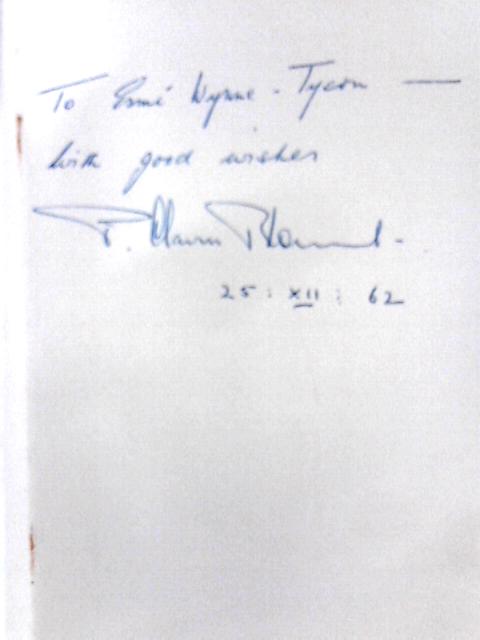 To Esmé Wynne-Tyson —
With good wishes
25 : XII : 62